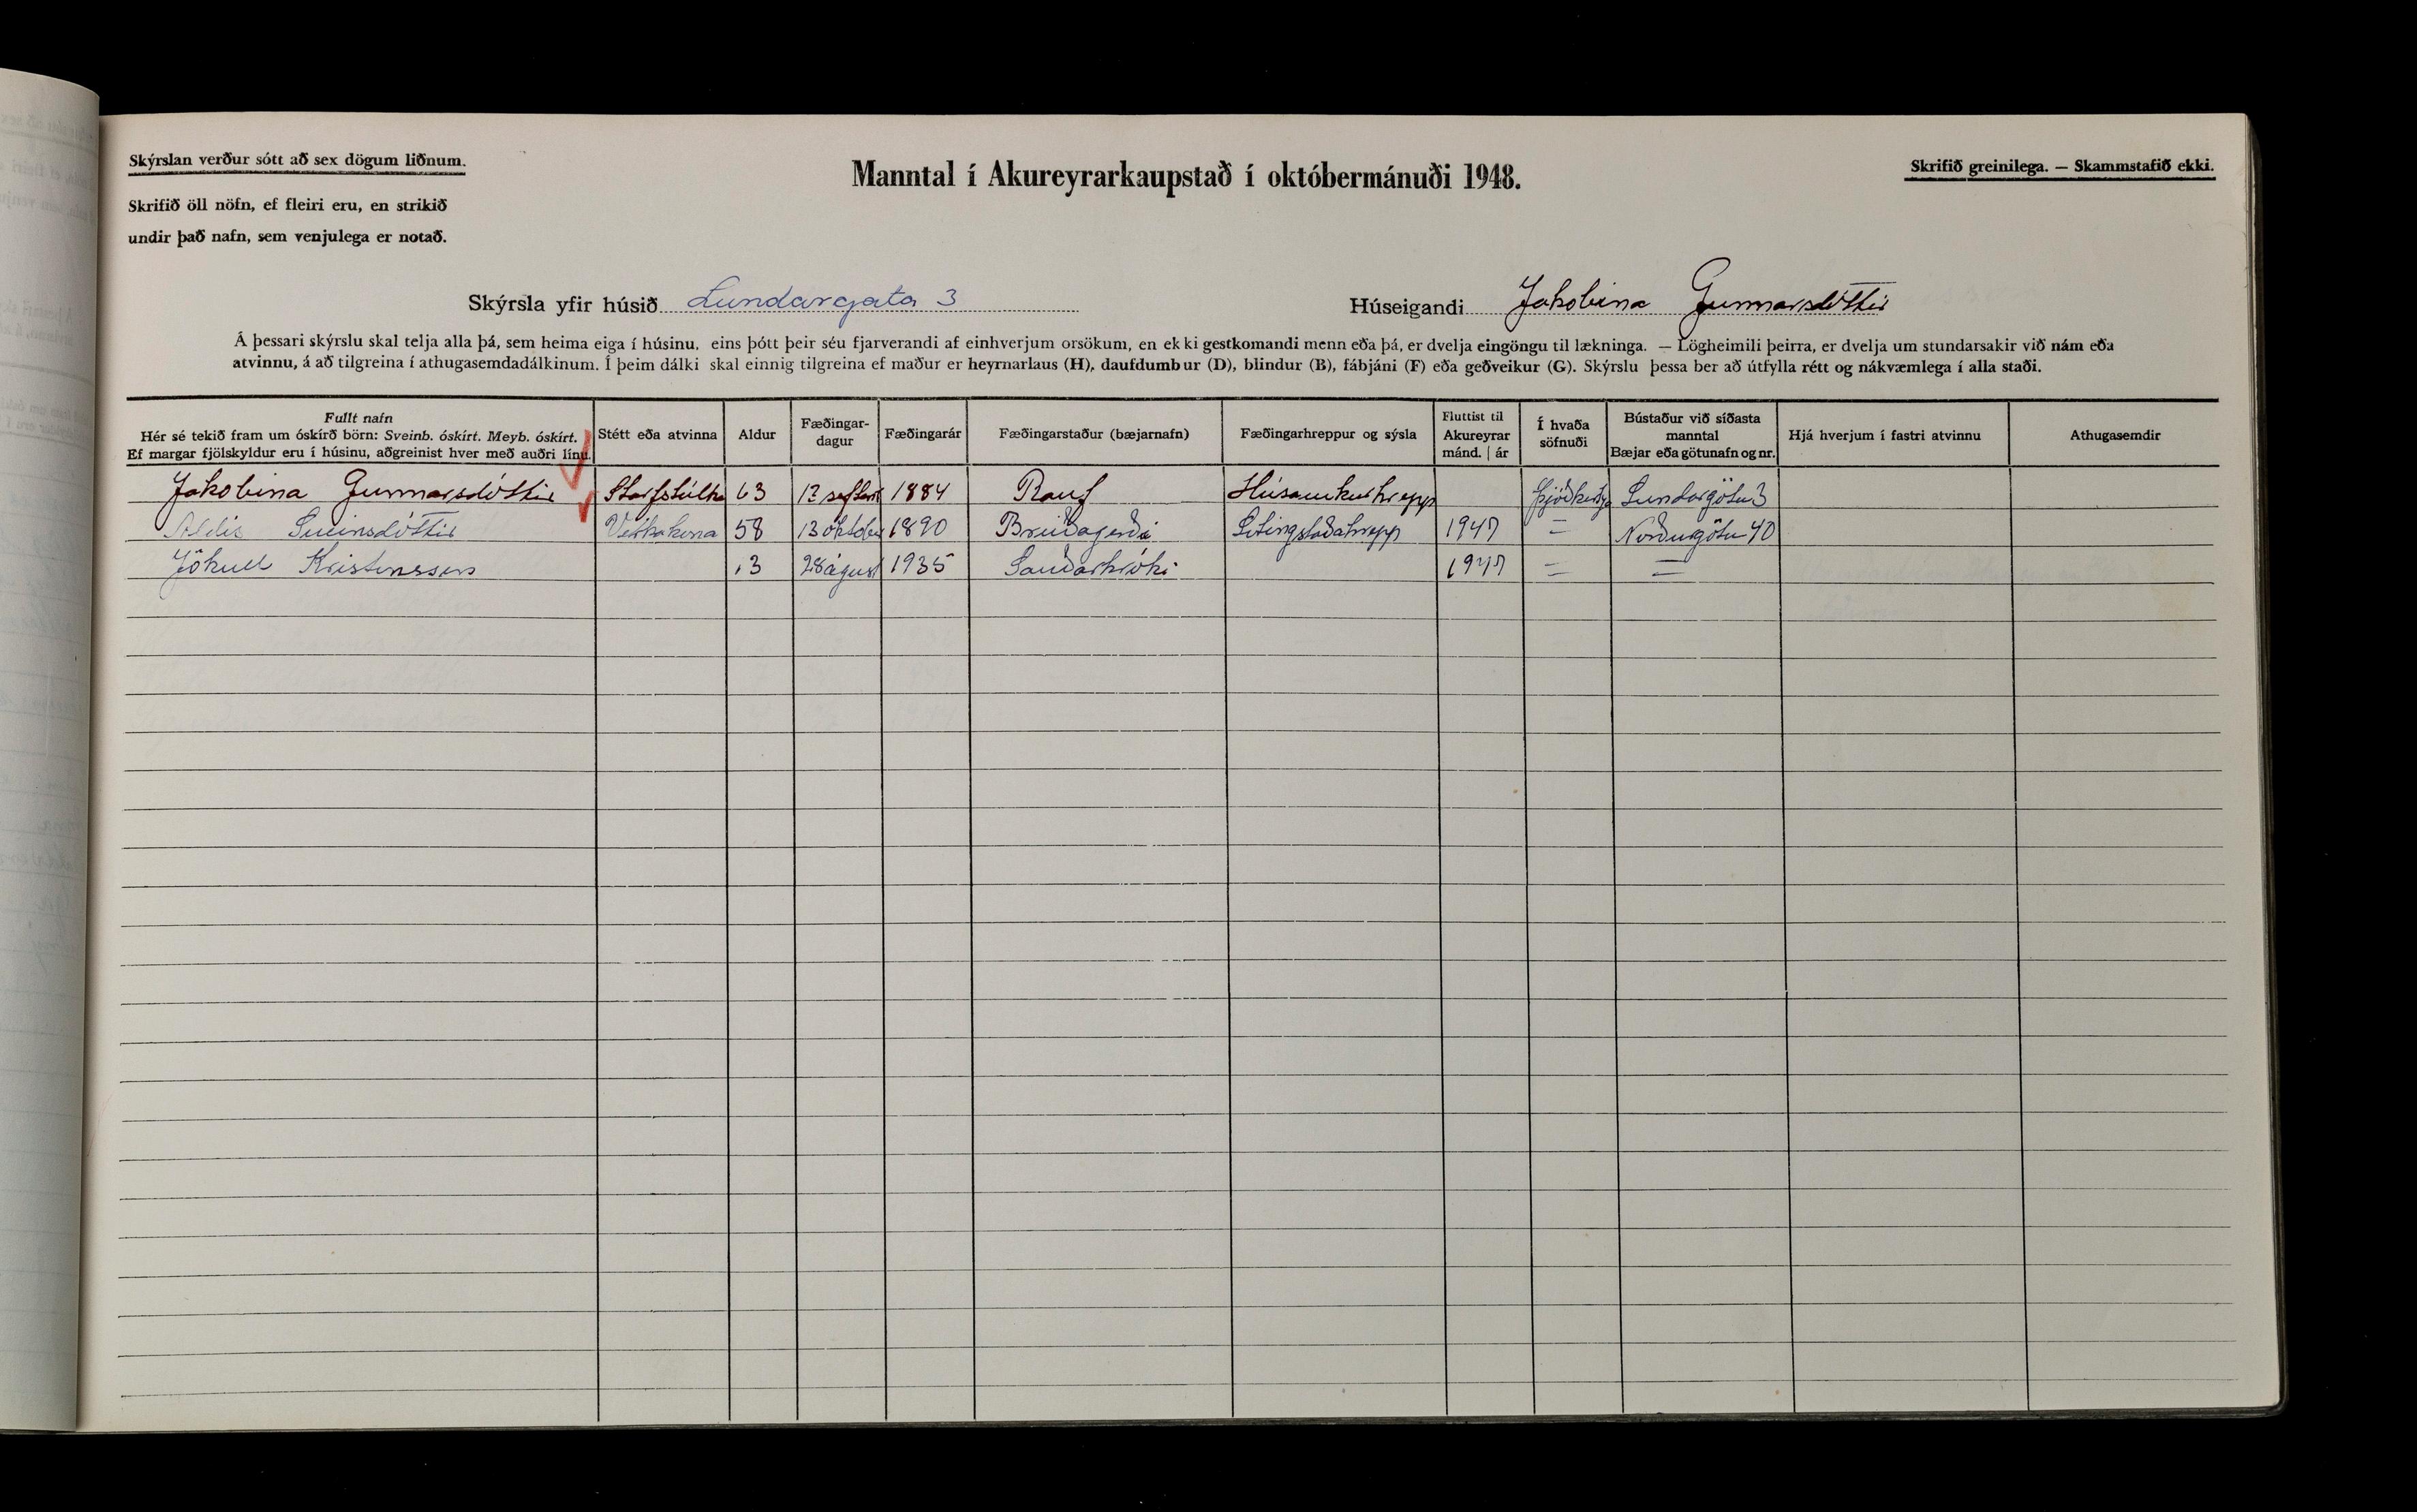 Skýrslan verður sótt að sex dögum liðnum.
Skrifið öll nöfn, ef fleiri eru, en strikið
undir það nafn, sem venjulega er notað.
Manntal í Akureyrarkaupstað í októbermánuði 1948.
Skrifið greinilega. — Skammstafið ekki.
Skýrsla yfir húsið Lundargata 3
Húseigandi Jakobína Gunnarsdóttir
Á þessari skýrslu skal telja alla þá, sem heima eiga í húsinu, eins þótt þeir séu fjarverandi af einhverjum orsökum, en ekki gestkomandi menn eða þá, er dvelja eingöngu til lækninga. — Lögheimili þeirra, er dvelja um stundarsakir við nám eða
atvinnu, á að tilgreina í athugasemdadálkinum. Í þeim dálki skal einnig tilgreina ef maður er heyrnarlaus (H), daufdumbur (D), blindur (B), fábjáni (F) eða geðveikur (G). Skýrslu þessa ber að útfylla rétt og nákvæmlega í alla staði.
Fullt nafn
Hér sé tekið fram um óskírð börn: Sveinb. óskírt. Meyb. óskírt.
Ef margar fjölskyldur eru í húsinu, aðgreinist hver með auðri línu.
Stétt eða atvinna
Aldur
Fæðingar-
dagur
Fæðingarár
Fæðingarstaður (bæjarnafn)
Fæðingarhreppur og sýsla
Fluttist til
Akureyrar
mánd. | ár
Í hvaða
söfnuði
Bústaður við síðasta
manntal
Bæjar eða götunafn og nr.
Hjá hverjum í fastri atvinnu
Athugasemdir
Jakobina Gunnarsdóttir Starfstúlka 63 12 1884 Rauf Húsavikurhrepp Þjóðkirkja Lundargötu 3
Aldís Sveinsdóttir Verkakona 58 13 október 1890 Breiðagerði Litingstaðahrepp 1947 = Norðurgötu 40
Jökull Kristinsson 13 28 águst 1935 Sauðárkróki 1947 = =